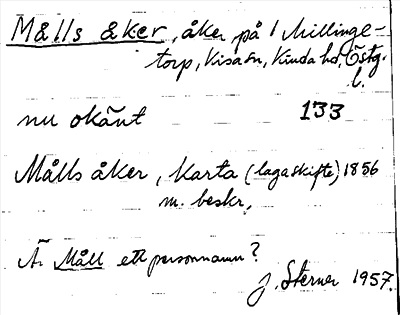 Målls åker, åker på 1 Millinge-
torp, Kisa sn, Kinda hd, Östg.
l.
nu okänt 133
Målls åker, Karta (laga skifte) 1856
m. beskr.
Är Måll ett personnamn?
J. Sterner 1957.